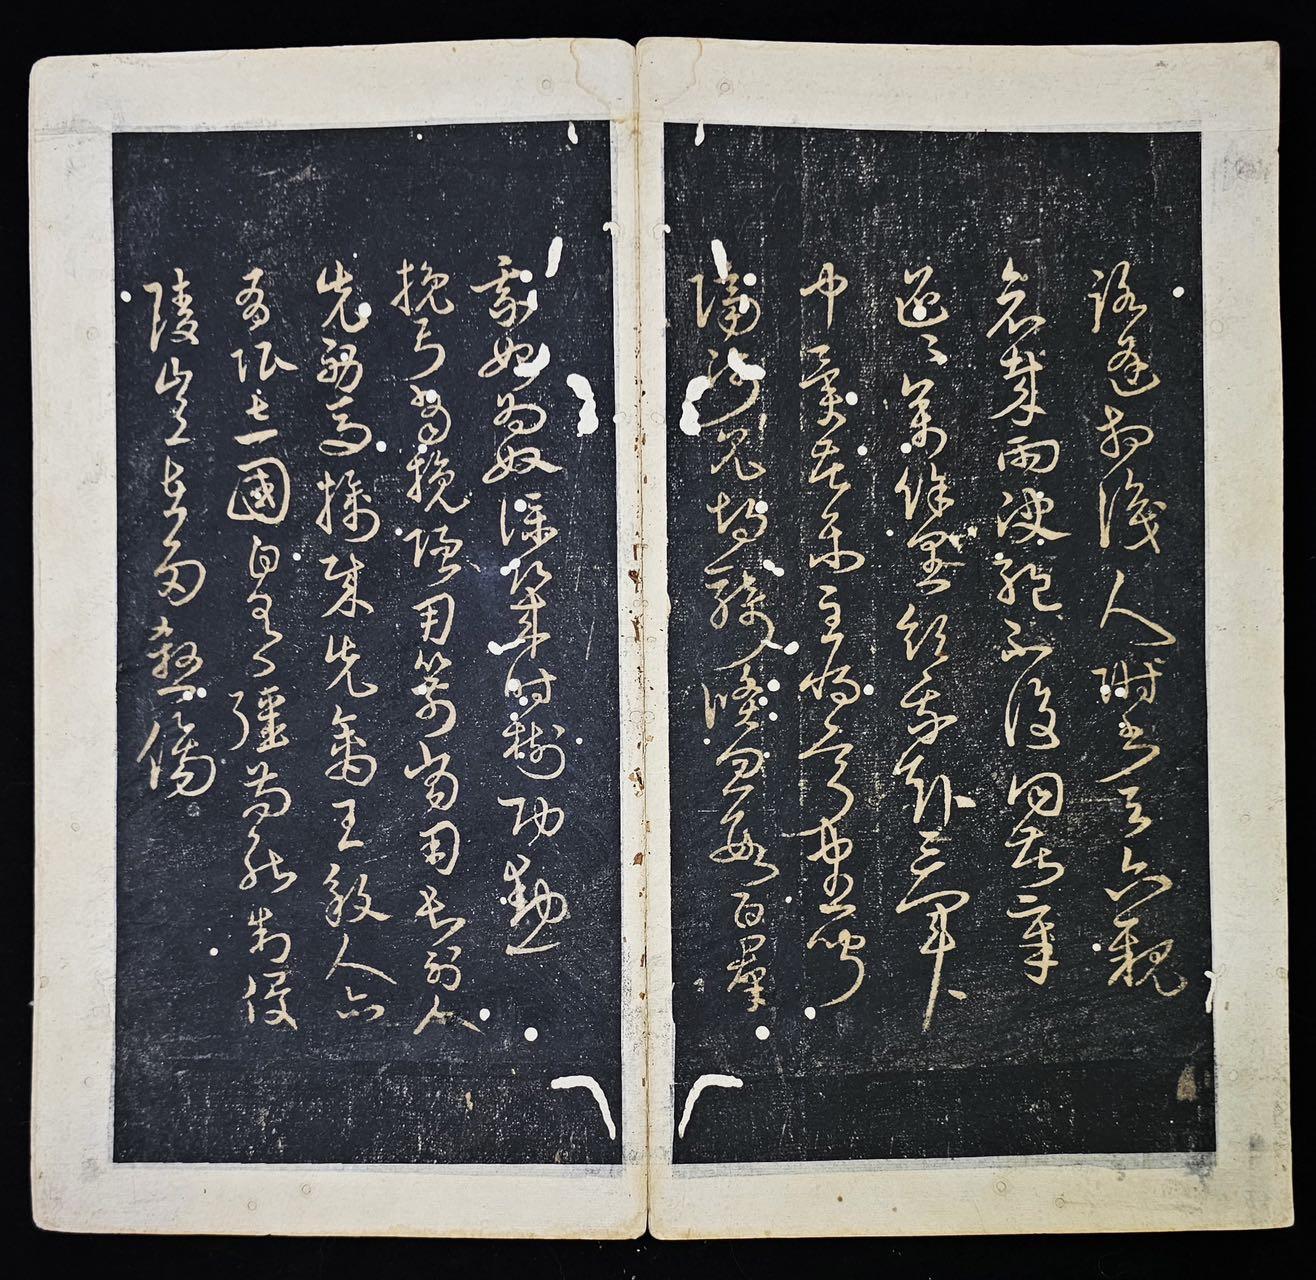 路逢相識人附書與六親
哀哉兩決絕不復同苦辛
迢々萬餘里領我赴三軍々
中異苦樂主將寧盡聞
隔河見胡騎倏忽數百群
我始為奴僕幾時樹功勳
挽弓當挽強用箭當用長射人
先射馬擒賊先擒王殺人亦
有限立國自有疆苟能制侵
陵豈在多殺傷